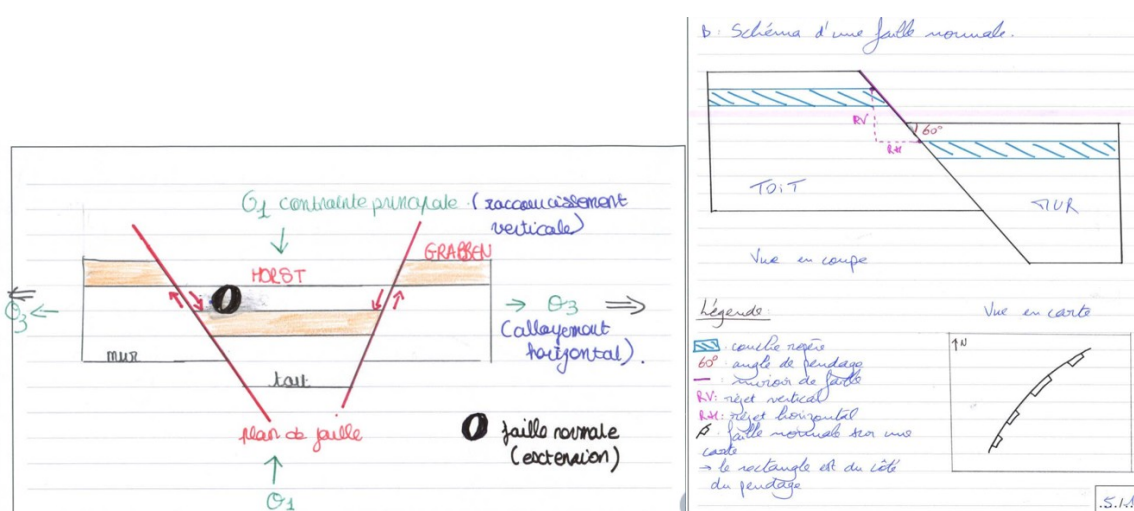 σ1 contrainte principale (raccourcissement
verticale)
GRABBEN
HORST
σ3
σ3
(allongement
horizontal).
mur
toit
plan de faille
σ1
0 faille normale
(extension)
B. Schéma d'une faille normale.
RV
60°
RH
TOIT
MUR
Vue en coupe
Légende:
couche repère
60° angle de pendage
miroir de faille
RV: rejet vertical
RH: rejet horizontal
faille normale sur une
carte
→ le rectangle est du côté
du pendage
Vue en carte
↑N